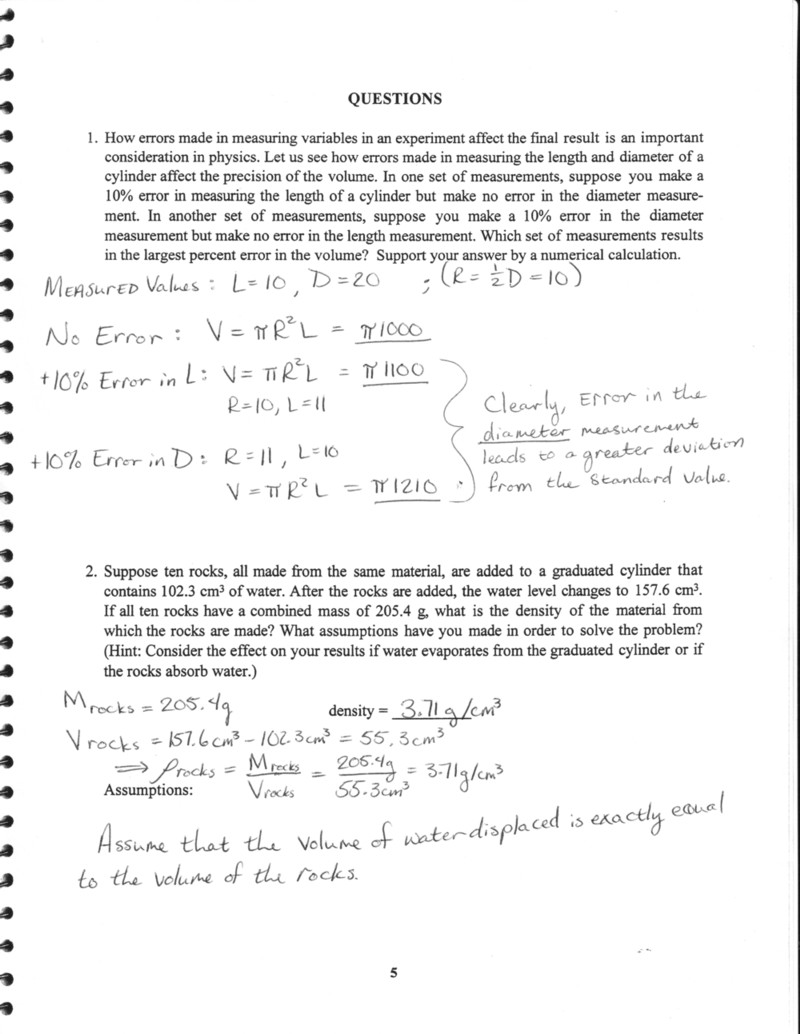 QUESTIONS
1. How errors made in measuring variables in an experiment affect the final result is an important
consideration in physics. Let us see how errors made in measuring the length and diameter of a
cylinder affect the precision of the volume. In one set of measurements, suppose you make a
10% error in measuring the length of a cylinder but make no error in the diameter measure-
ment. In another set of measurements, suppose you make a 10% error in the diameter
measurement but make no error in the length measurement. Which set of measurements results
in the largest percent error in the volume? Support your answer by a numerical calculation.
MEASURED Values : L = 10 , D = 20 ; (R = ½D = 10)
No Error : V = πR²L = π1000
+10% Error in L : V = πR²L = π1100
R = 10, L = 11
+10% Error in D : R = 11 , L = 10
V = πR²L = π1210
Clearly, Error in the
diameter measurement
leads to a greater deviation
from the standard value.
2. Suppose ten rocks, all made from the same material, are added to a graduated cylinder that
contains 102.3 cm³ of water. After the rocks are added, the water level changes to 157.6 cm³.
If all ten rocks have a combined mass of 205.4 g, what is the density of the material from
which the rocks are made? What assumptions have you made in order to solve the problem?
(Hint: Consider the effect on your results if water evaporates from the graduated cylinder or if
the rocks absorb water.)
M rocks = 205.4g
density = 3.71 g/cm³
V rocks = 157.6 cm³ - 102.3 cm³ = 55.3 cm³
⟹ ρ rocks = M rocks / V rocks = 205.4g / 55.3cm³ = 3.71 g/cm³
Assumptions:
Assume that the volume of water displaced is exactly equal
to the volume of the rocks.
5